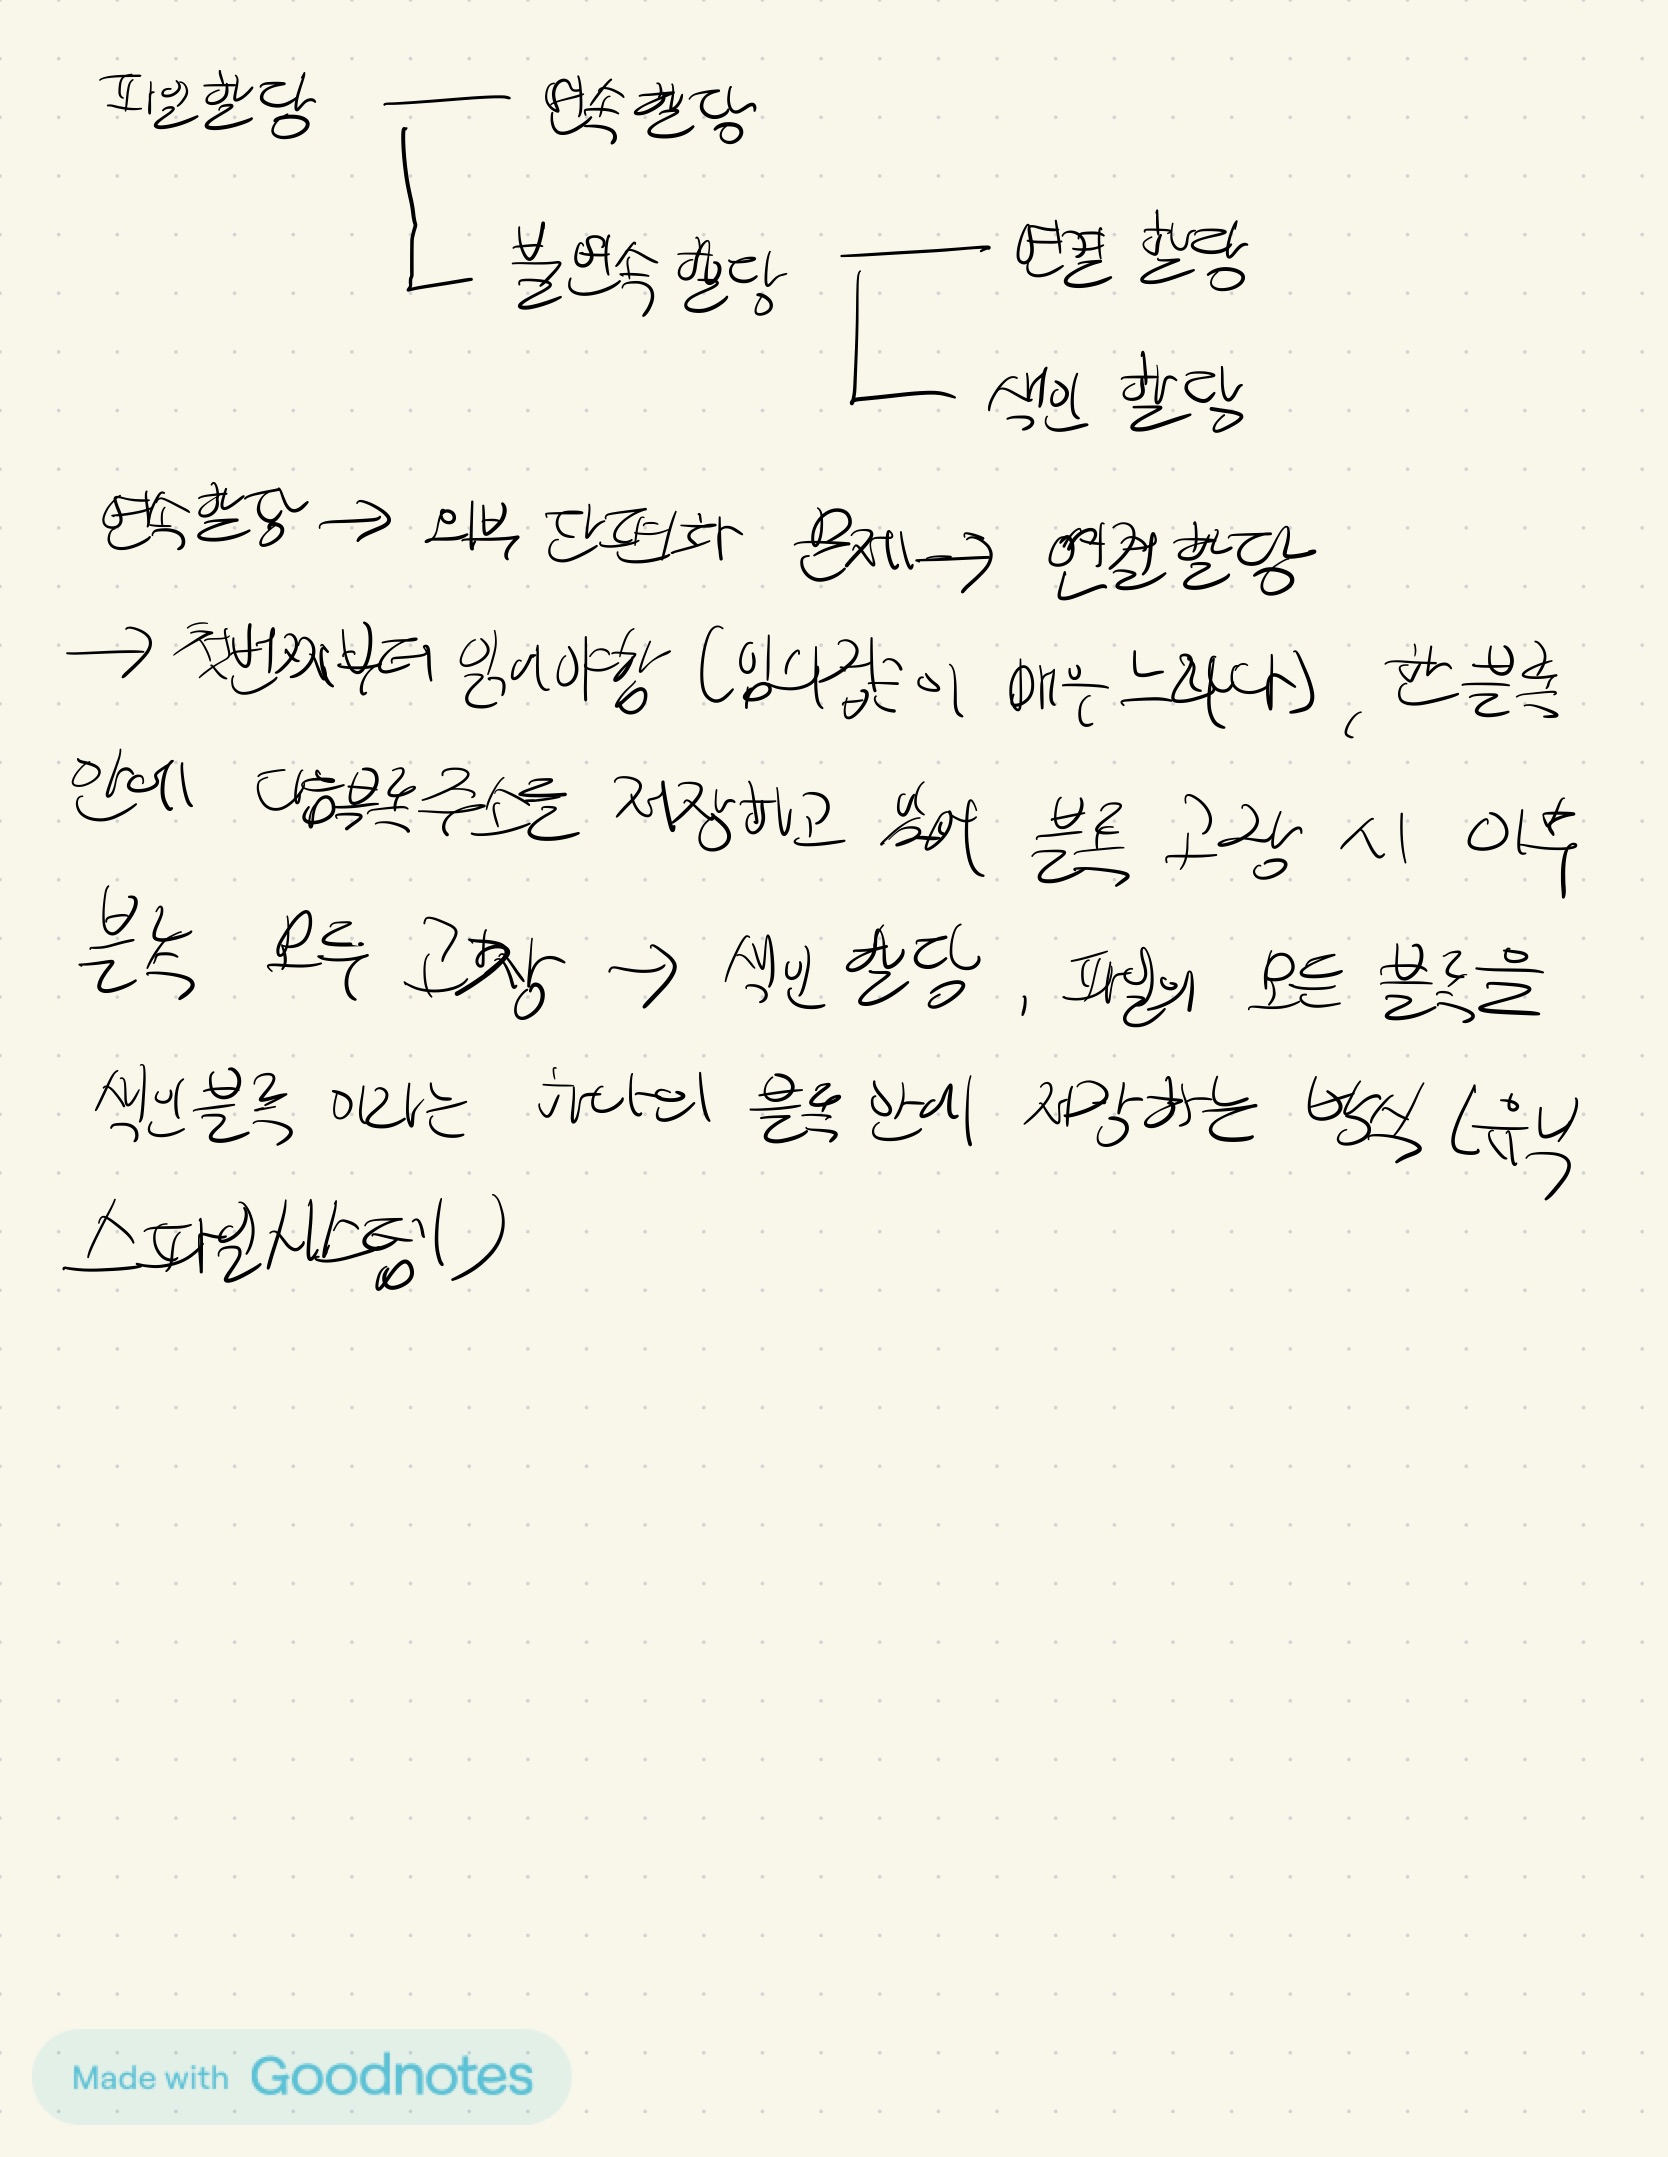 파일할당 연속할당
불연속할당 연결 할당
색인 할당
연속할당 → 외부 단편화 문제 → 연결할당
→ 첫번째부터 읽어야함 (임의접근이 매우 느리다), 한 블록
안에 다음블록주소를 저장하고 있어 블록 고장 시 이후
블록 모두 고장 → 색인 할당, 파일의 모든 블록을
색인블록 이라는 하나의 블록 안에 저장하는 방식 (유닉
스파일시스템)
Made with Goodnotes